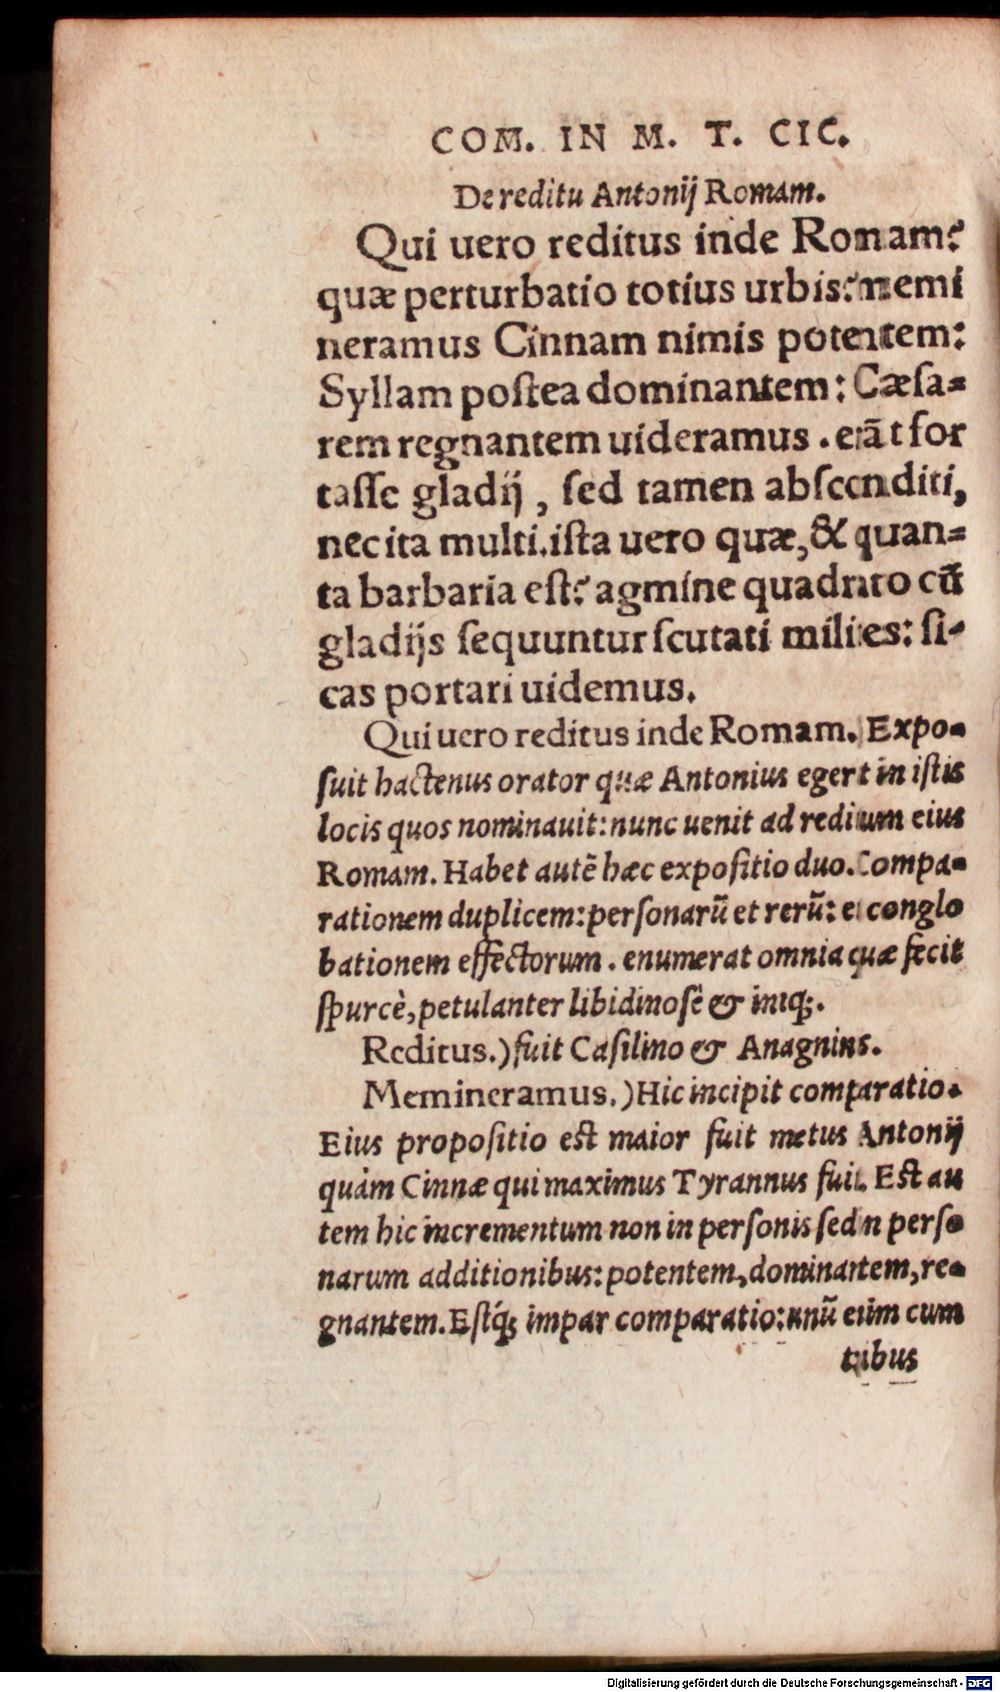 COM. IN M. T. CIC.
De reditu Antonij Romam.
Qui uero reditus inde Romam?
quæ perturbatio totius urbis? memi
neramus Cinnam nimis potentem:
Syllam poſtea dominantem: Cæſa-
rem regnantem uideramus. erāt for
taſſe gladij, ſed tamen abſconditi,
nec ita multi. iſta uero quæ, & quan-
ta barbaria eſt? agmine quadrato cū
gladijs ſequuntur ſcutati milites: ſi-
cas portari uidemus.
Qui uero reditus inde Romam.) Expo-
ſuit hactenus orator quæ Antonius egerit in iſtis
locis quos nominauit: nunc uenit ad reditum eius
Romam. Habet autē hæc expoſitio duo. Compa-
rationem duplicem: perſonarū et rerū: et conglo
bationem effectorum. enumerat omnia quæ fecit
ſpurcè, petulanter libidinoſè & iniq;.
Reditus.) fuit Caſilino & Anagnins.
Memineramus.) Hic incipit comparatio.
Eius propoſitio eſt maior fuit metus Antonij
quàm Cinnæ qui maximus Tyrannus fuit. Eſt au
tem hic incrementum non in perſonis ſed in perſo
narum additionibus: potentem, dominantem, re-
gnantem. Eſtq́; impar comparatio: unū enim cum
tribus
Digitalisierung gefördert durch die Deutsche Forschungsgemeinschaft - DFG